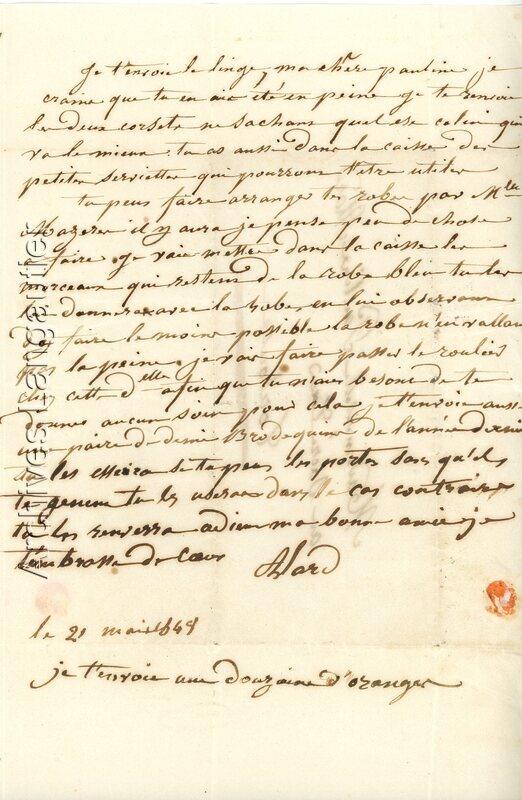 Je t'envoie le linge, ma chère pauline je
crains que tu en aie été en peine je te renvoie
les deux corsets ne sachant quel est celui qui
va le mieux. tu as aussi dans la caisse des
petites serviettes qui pourront t'être utiles
tu peus faire arranger tes robes par Mlle
Mazeres il y aura je pense peu de chose
a faire je vais mettre dans la caisse les
morceaux qui restent de la robe bleu tu les
donneras avec la robe, en lui observant
de faire le moins possible la robe n'en vallant
pas la peine. je vais faire passer le rouleau
chez cette dlle afin que tu n'aies besoin de te
donner aucun soin pour cela, je t'envoie aussi
une paire de demie Brodequins de l'année dernière
tu les essiera si tu peus les porter sans qu'ils
te genent tu les useras dans le cas contraire
tu les renverra adieu ma bonne amie je
t'embrasse de Cœur
Alard
le 21 mai 1848
je t'envoie une douzaine d'oranges
Archives Langautier